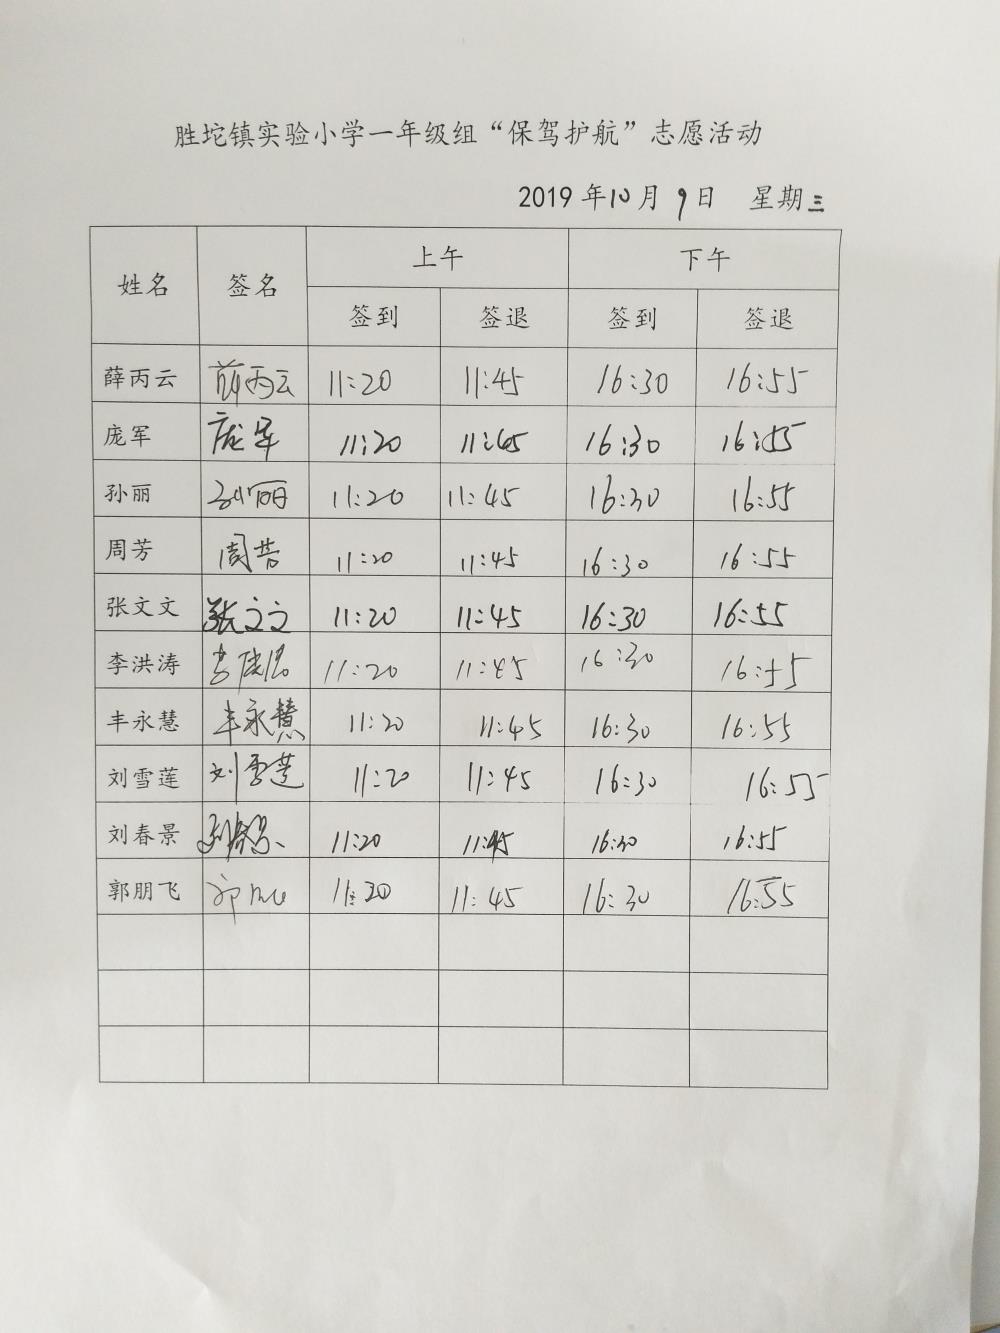 胜坨镇实验小学一年级组“保驾护航”志愿活动
2019年10月9日 星期三
姓名 签名 上午 下午
签到 签退 签到 签退
薛丙云 薛丙云 11:20 11:45 16:30 16:55
庞军 庞军 11:20 11:45 16:30 16:55
孙丽 孙丽 11:20 11:45 16:30 16:55
周芳 周芳 11:20 11:45 16:30 16:55
张文文 张文文 11:20 11:45 16:30 16:55
李洪涛 李洪涛 11:20 11:45 16:30 16:55
丰永慧 丰永慧 11:20 11:45 16:30 16:55
刘雪莲 刘雪莲 11:20 11:45 16:30 16:55
刘春景 刘春景 11:20 11:45 16:30 16:55
郭朋飞 11:20 11:45 16:30 16:55